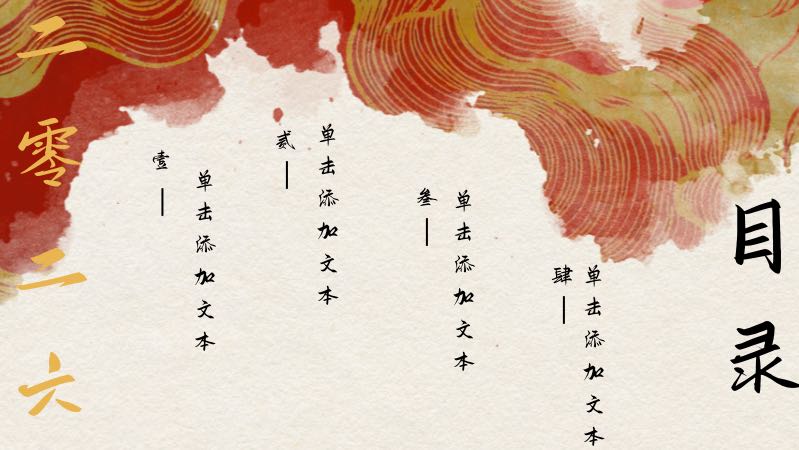 二零二六
壹
单击添加文本
贰
单击添加文本
叁
单击添加文本
肆
单击添加文本
目录